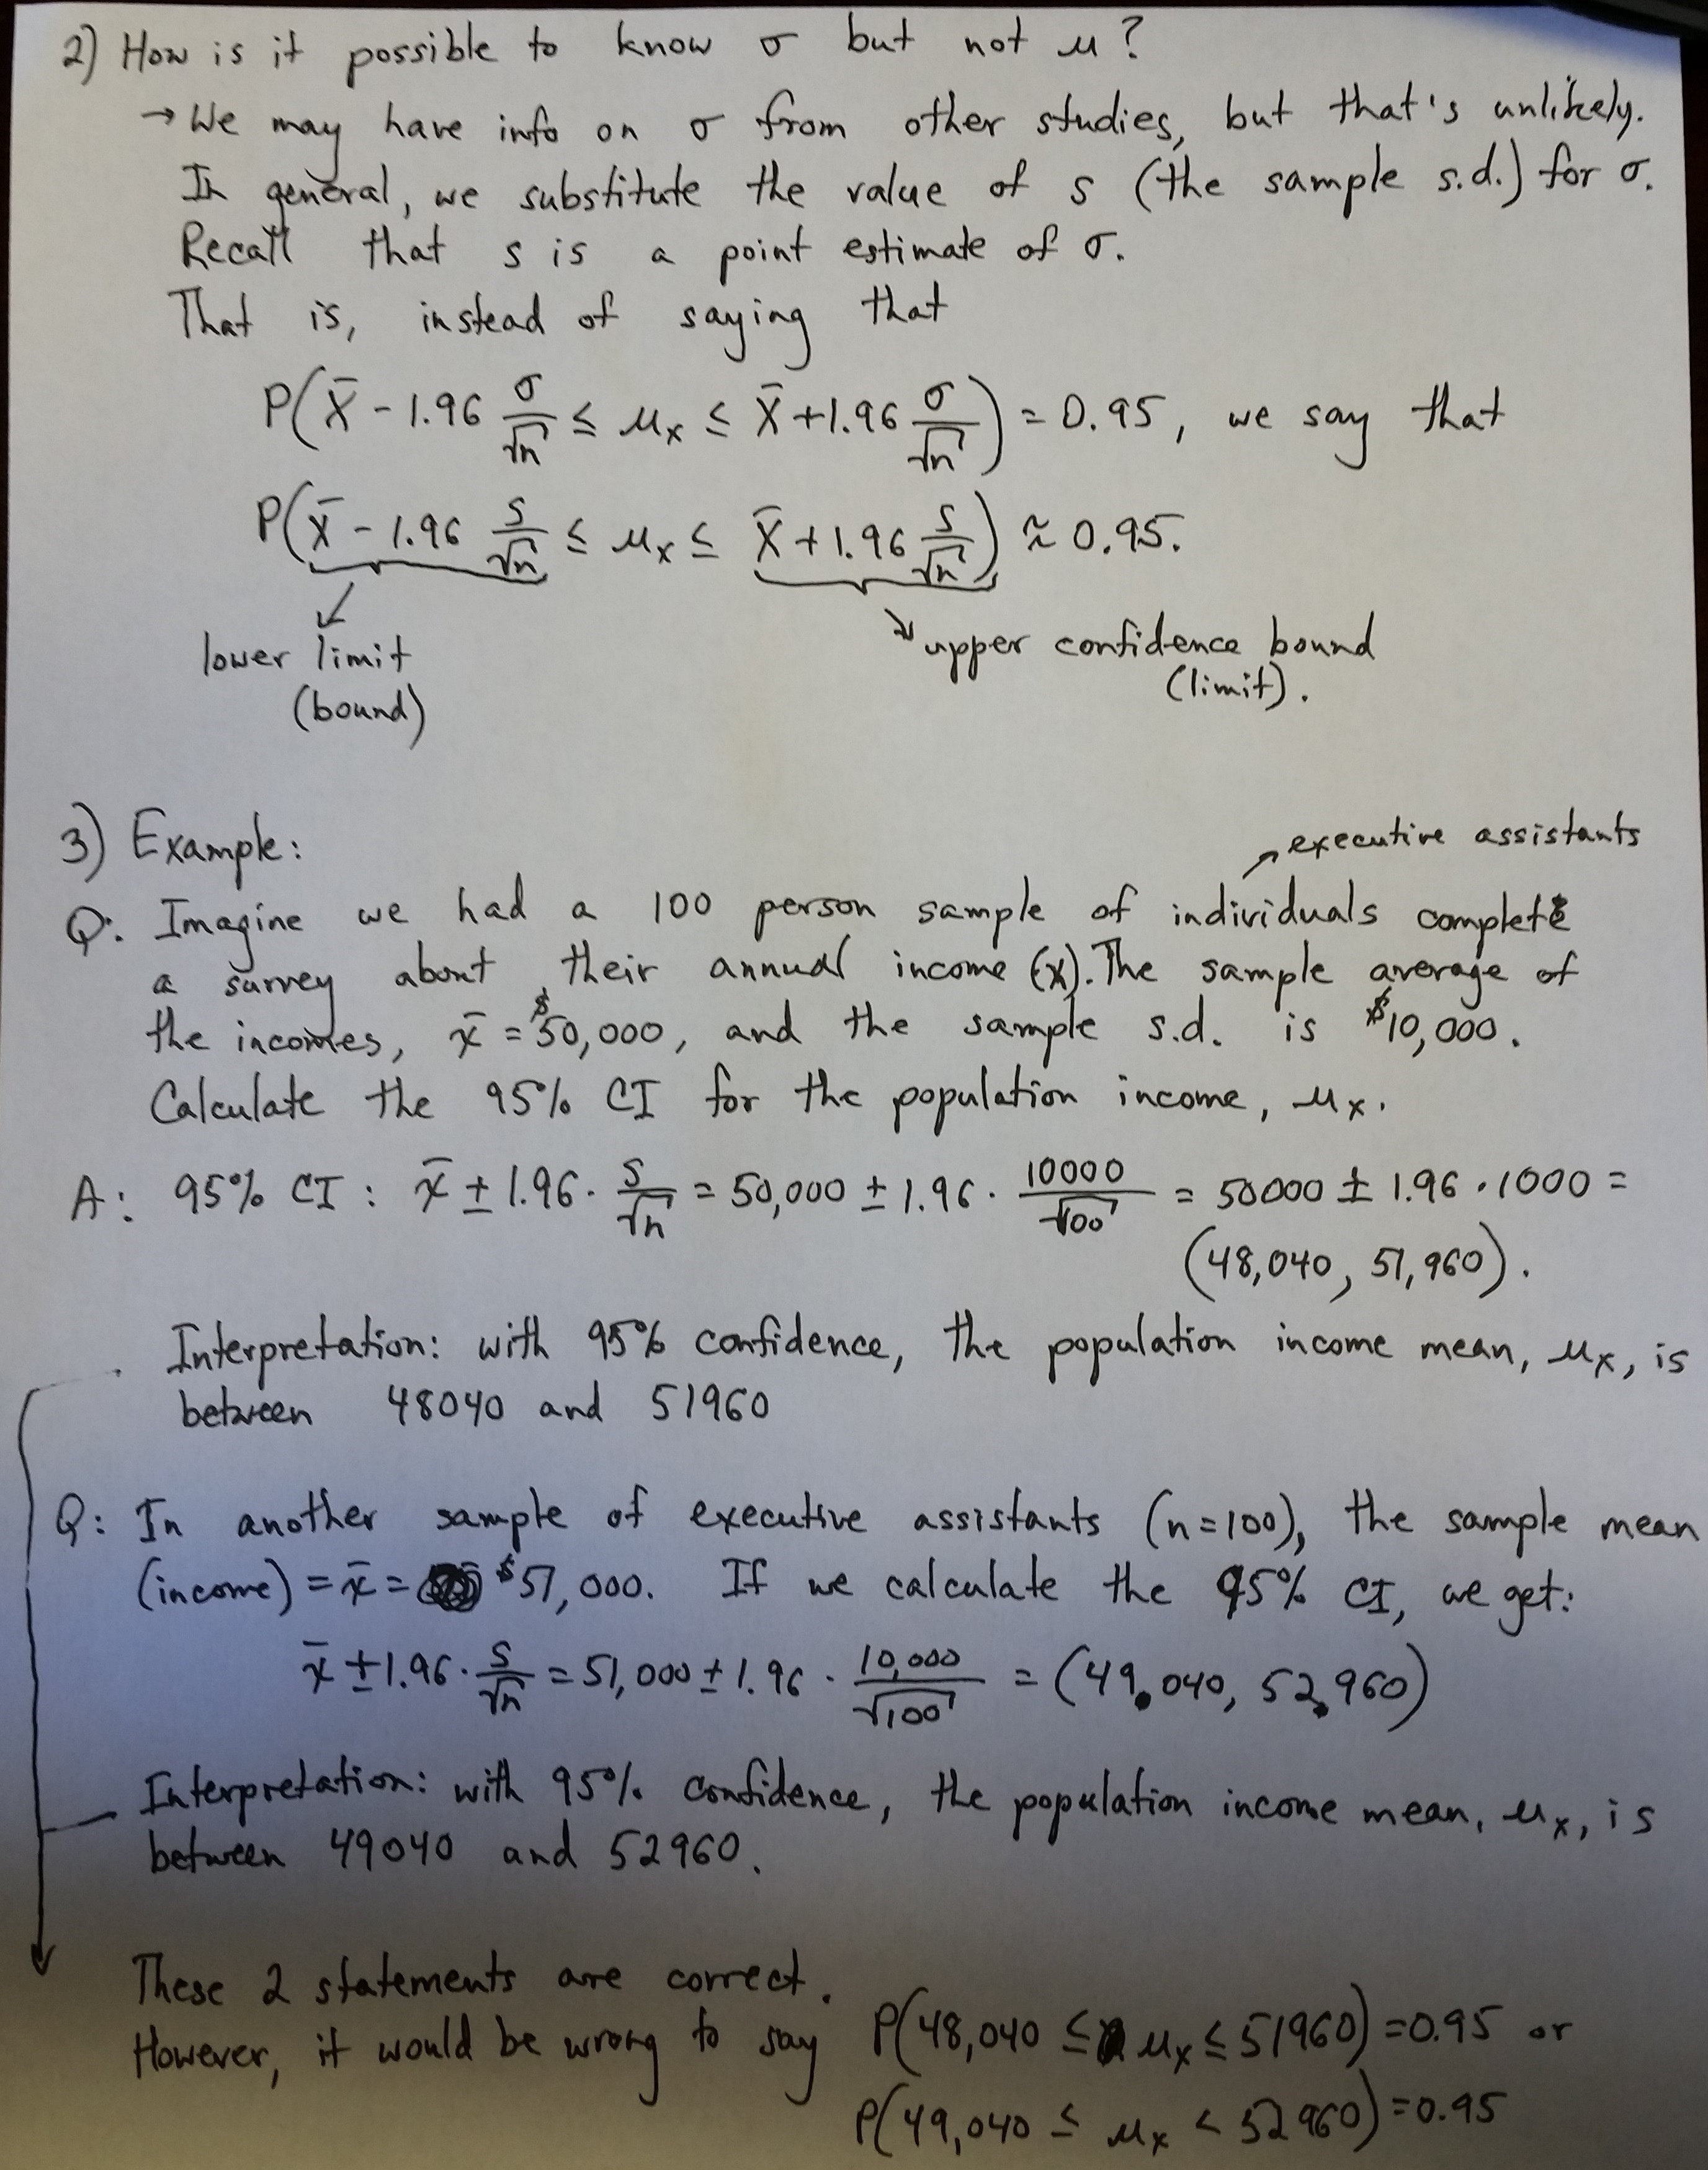 2) How is it possible to know σ but not μ?
→ We may have info on σ from other studies, but that's unlikely.
In general, we substitute the value of s (the sample s.d.) for σ.
Recall that s is a point estimate of σ.
That is, instead of saying that
P(X̄ - 1.96 σ/√n ≤ μx ≤ X̄ + 1.96 σ/√n) = 0.95, we say that
P(X̄ - 1.96 s/√n ≤ μx ≤ X̄ + 1.96 s/√n) ≈ 0.95.
lower limit (bound)
upper confidence bound (limit).
3) Example:
↗ executive assistants
Q: Imagine we had a 100 person sample of individuals complete
a survey about their annual income (x). The sample average of
the incomes, x̄ = $50,000, and the sample s.d. is $10,000.
Calculate the 95% CI for the population income, μx.
A: 95% CI: x̄ ± 1.96 · s/√n = 50,000 ± 1.96 · 10000/√100 = 50000 ± 1.96 · 1000 =
(48,040, 51,960).
Interpretation: with 95% confidence, the population income mean, μx, is
between 48040 and 51960
Q: In another sample of executive assistants (n=100), the sample mean
(income) = x̄ = $51,000. If we calculate the 95% CI, we get:
x̄ ± 1.96 · s/√n = 51,000 ± 1.96 · 10,000/√100 = (49,040, 52,960)
Interpretation: with 95% confidence, the population income mean, μx, is
between 49040 and 52960.
These 2 statements are correct.
However, it would be wrong to say P(48,040 ≤ μx ≤ 51960) = 0.95 or
P(49,040 ≤ μx < 52960) = 0.95